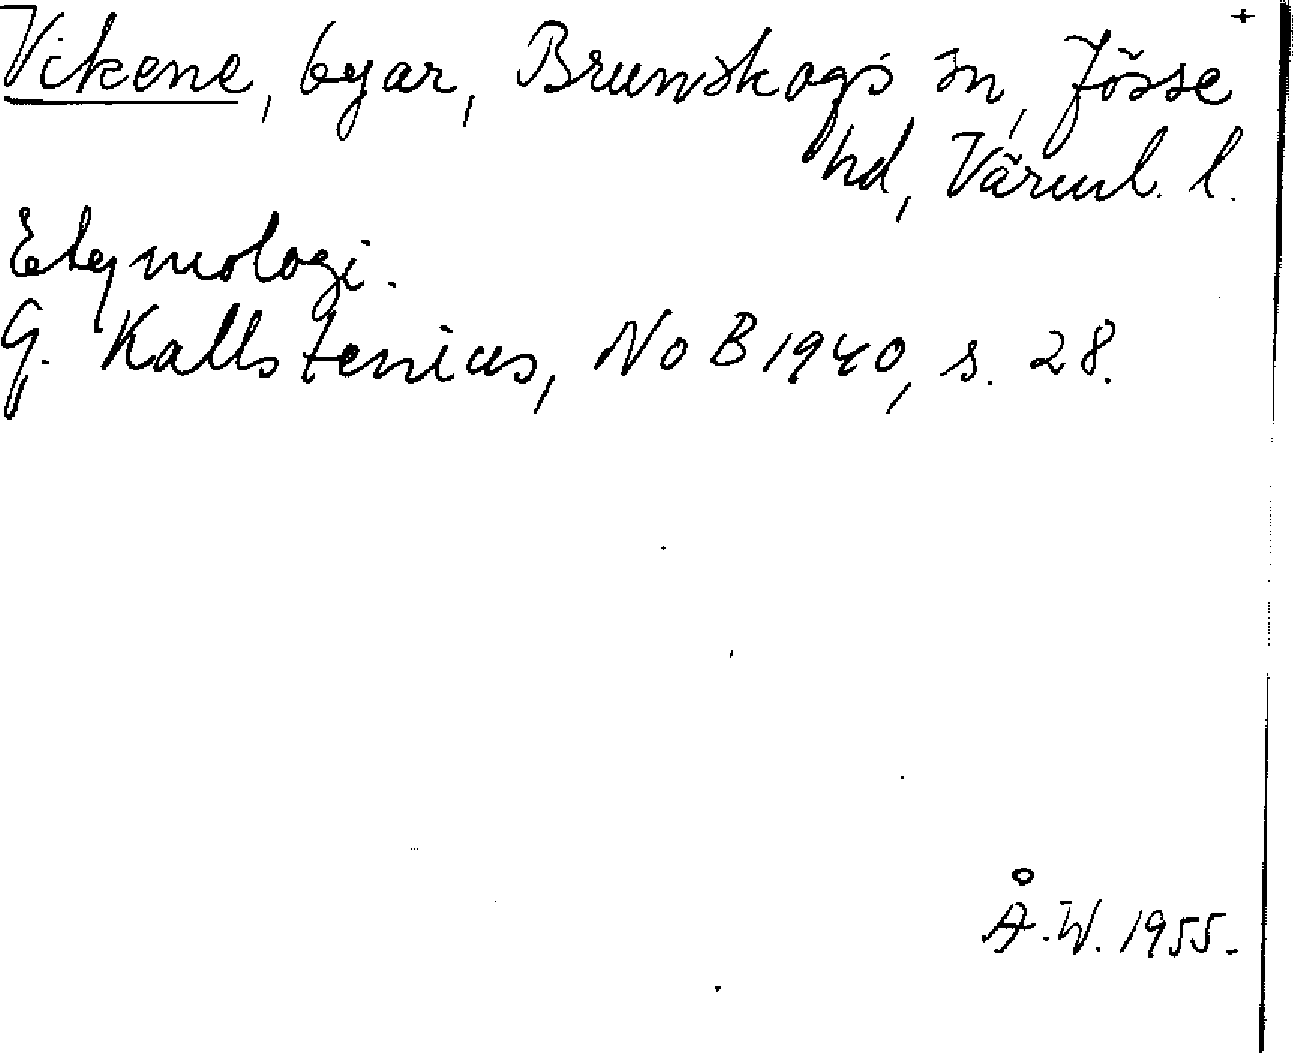 +
Vikene, byar, Brunskogs sn, Jösse
hd, Värml. l.
Etymologi.
G. Kallstenius, NoB 1940, s. 28.
Å.W. 1955.